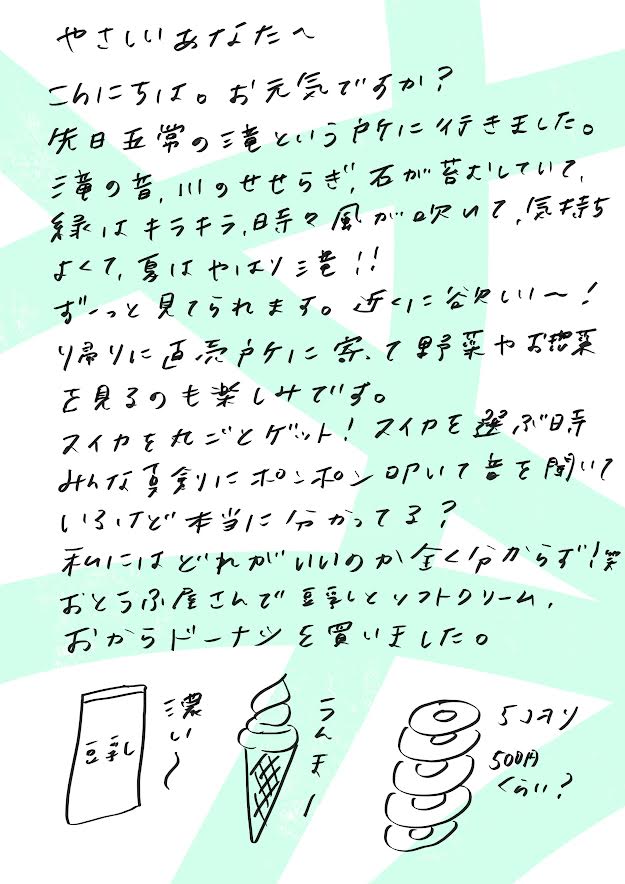 やさしいあなたへ
こんにちは。お元気ですか？
先日五常の滝という所に行きました。
滝の音、川のせせらぎ、石が苔むしていて、
緑はキラキラ、時々風が吹いて、気持ち
よくて、夏はやはり滝!!
ずーっと見てられます。近くに欲しい〜!
り帰りに直売所に寄って野菜やお惣菜
を見るのも楽しみです。
スイカを丸ごとゲット! スイカを選ぶ時
みんな真剣にポンポン叩いて音を聞いて
いるけど本当に分かってる?
私にはどれがいいのか全く分からず!笑
おとうふ屋さんで豆乳とソフトクリーム、
おからドーナツを買いました。
豆乳
濃い〜
うんまー
5コ入り
500円
くらい?